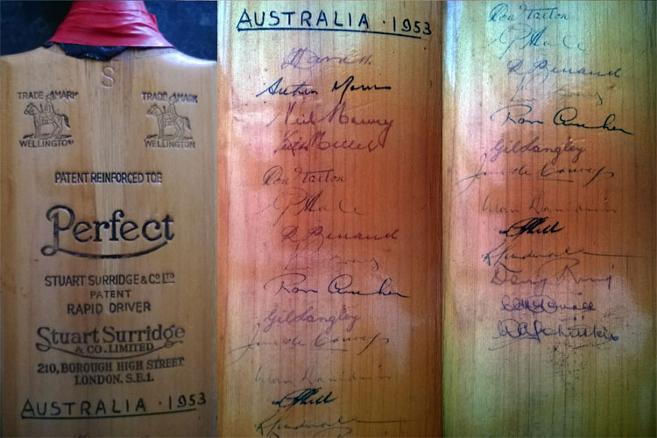 S
TRADE MARK TRADE MARK
WELLINGTON WELLINGTON
PATENT REINFORCED TOE
Perfect
STUART SURRIDGE & CO LTD
PATENT
RAPID DRIVER
Stuart Surridge
& CO. LIMITED
210, BOROUGH HIGH STREET
LONDON, S.E.1.
AUSTRALIA · 1953
AUSTRALIA · 1953
Arthur Morris
Neil Harvey
Keith Miller
Don Tallon
G Hole
R Benaud
Ron Archer
Gil Langley
Jim de Courcy
Alan Davidson
Hill
Don Tallon
G Hole
R Benaud
Ron Archer
Gil Langley
Jim de Courcy
Alan Davidson
Hill
Doug Ring